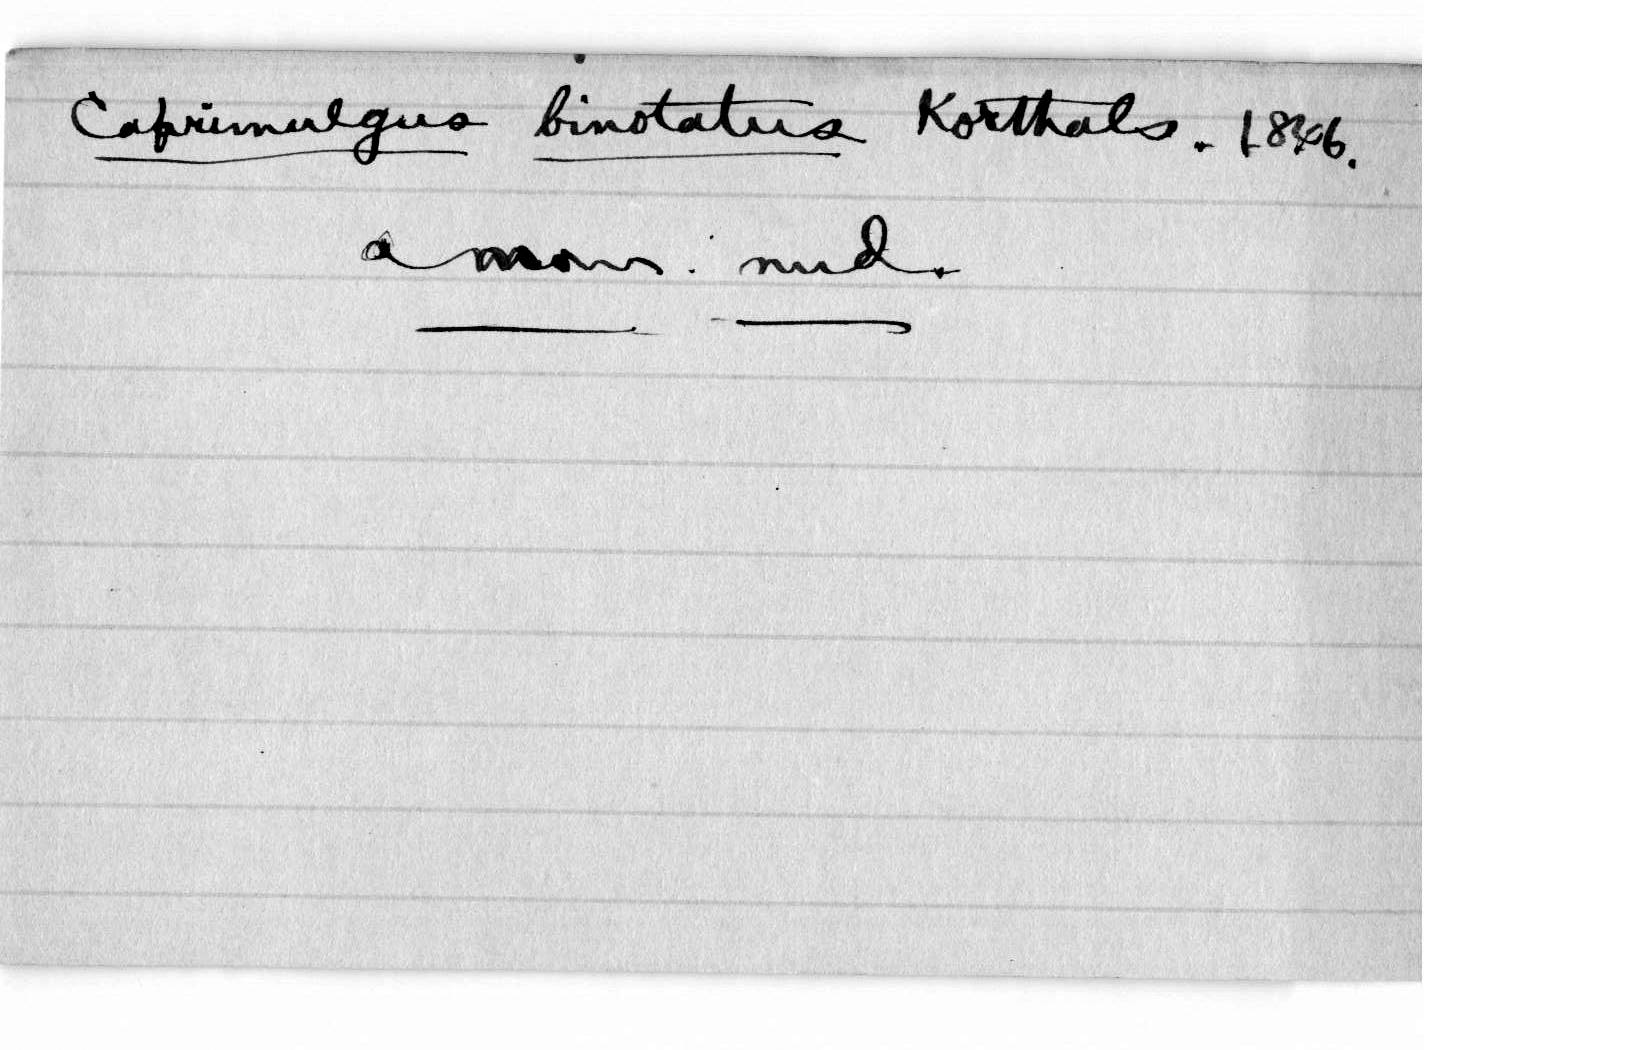 Caprimulgus binotatus Korthals. 1846.
a nom. nud.